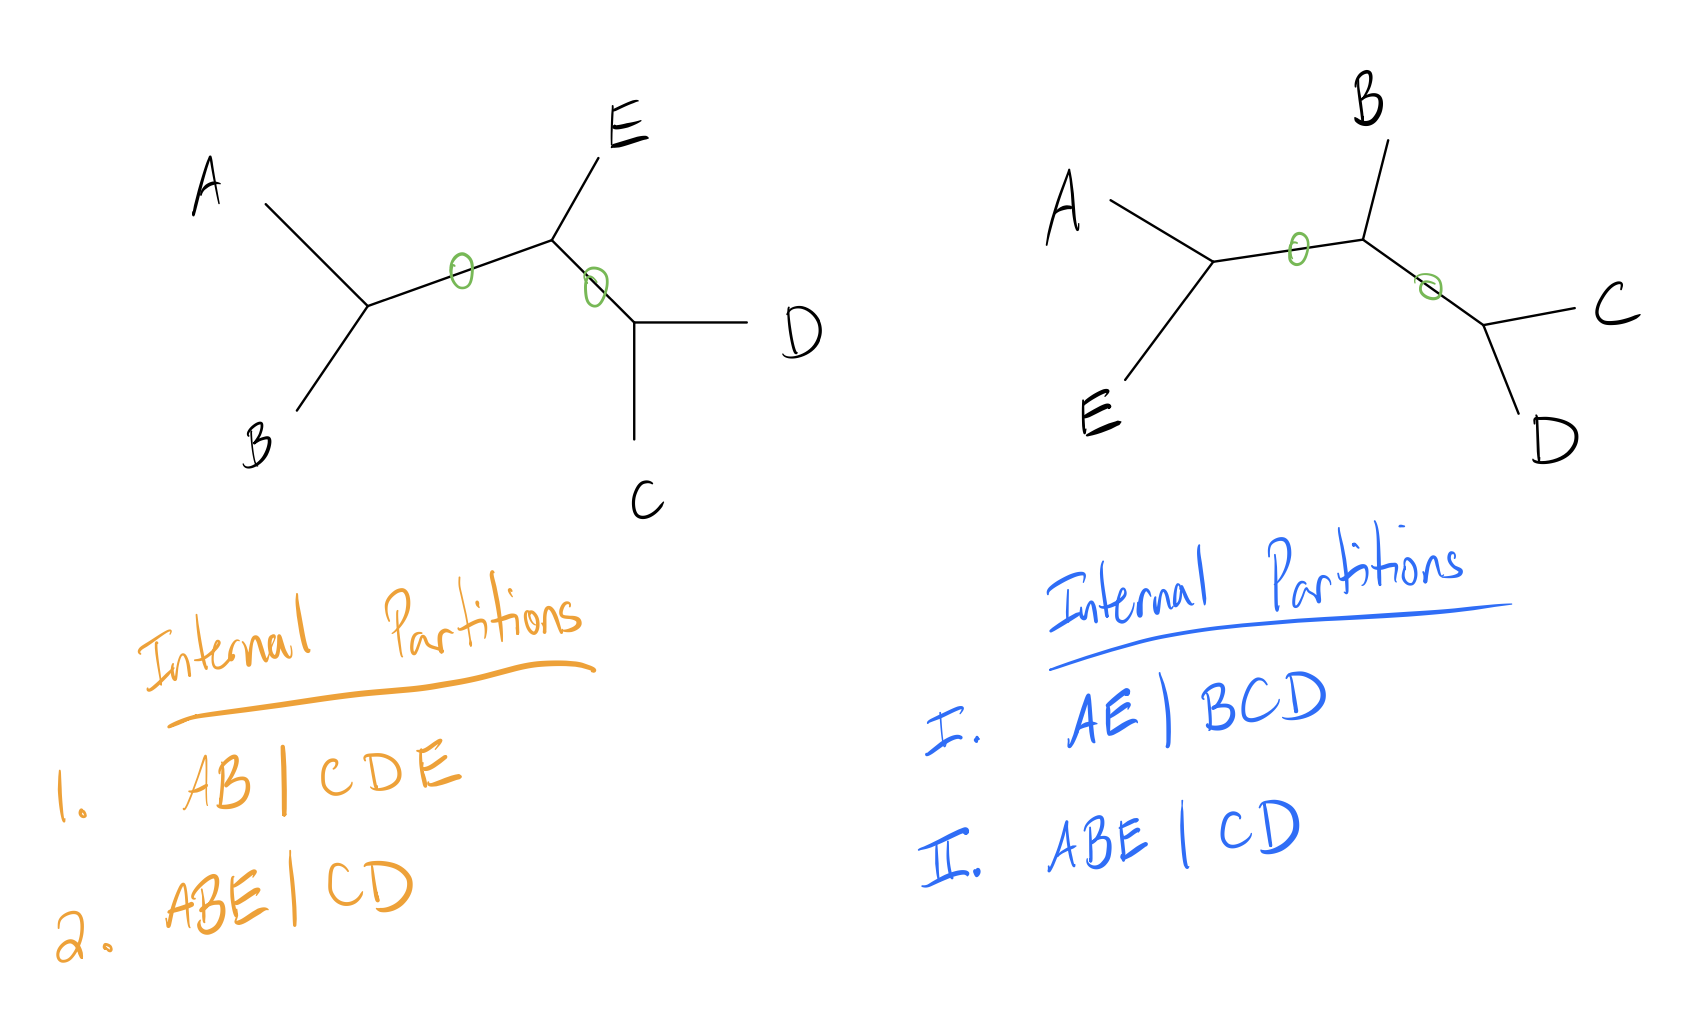 A
B
E
D
C
A
E
B
C
D
Internal Partitions
1. AB | CDE
2. ABE | CD
Internal Partitions
I. AE | BCD
II. ABE | CD